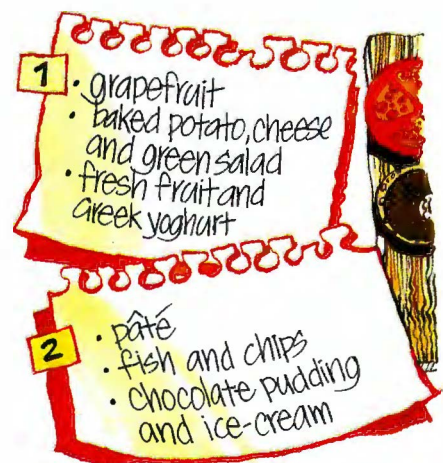 1
· grapefruit
· baked potato, cheese
and green salad
· fresh fruit and
Greek yoghurt
2
· pâté
· fish and chips
· chocolate pudding
and ice-cream